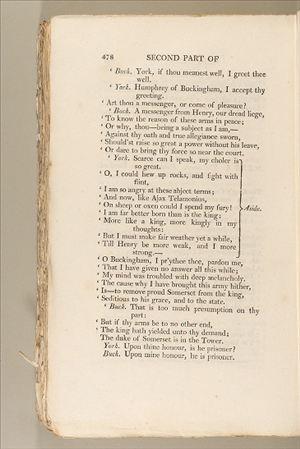 478 SECOND PART OF
‘ Buck. York, if thou meanest well, I greet thee
well.
‘ York. Humphrey of Buckingham, I accept thy
greeting.
‘ Art thou a messenger, or come of pleasure?
‘ Buck. A messenger from Henry, our dread liege,
‘ To know the reason of these arms in peace;
‘ Or why, thou—being a subject as I am,—
‘ Against thy oath and true allegiance sworn,
‘ Should'st raise so great a power without his leave,
‘ Or dare to bring thy force so near the court.
‘ York. Scarce can I speak, my choler is
so great.
‘ O, I could hew up rocks, and fight with
flint,
‘ I am so angry at these abject terms;
‘ And now, like Ajax Telamonius,
‘ On sheep or oxen could I spend my fury!
Aside.
‘ I am far better born than is the king;
‘ More like a king, more kingly in my
thoughts:
‘ But I must make fair weather yet a while,
‘ Till Henry be more weak, and I more
strong.—
‘ O Buckingham, I pr'ythee thee, pardon me,
‘ That I have given no answer all this while;
‘ My mind was troubled with deep melancholy.
‘ The cause why I have brought this army hither,
‘ Is—to remove proud Somerset from the king,
‘ Seditious to his grace, and to the state.
‘ Buck. That is too much presumption on thy
part:
‘ But if thy arms be to no other end,
‘ The king hath yielded unto thy demand;
The duke of Somerset is in the Tower.
York. Upon thine honour, is he prisoner?
Buck. Upon mine honour, he is prisoner.